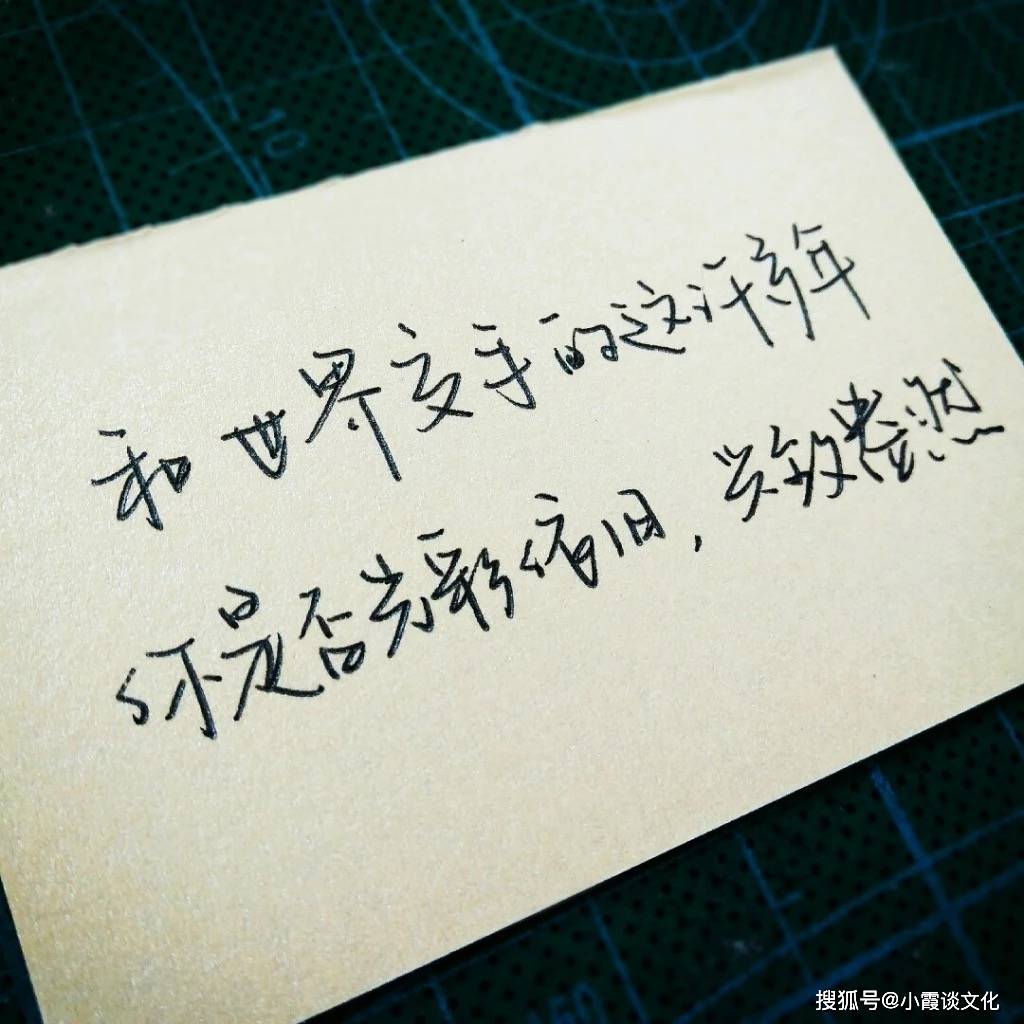 10
和世界交手的这许多年
你是否光彩依旧,兴致盎然
搜狐号@小霞谈文化